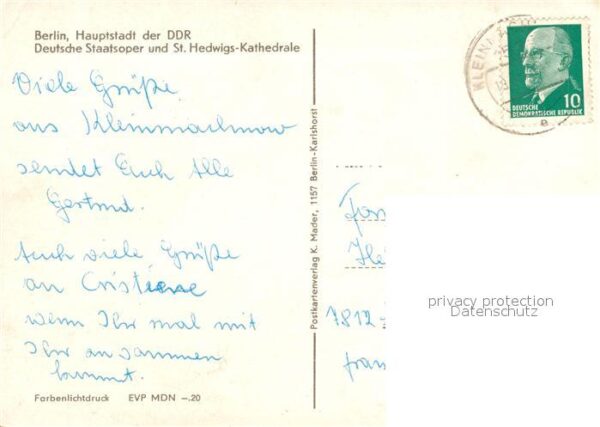 Berlin, Hauptstadt der DDR
Deutsche Staatsoper und St. Hedwigs-Kathedrale
Viele Grüße
aus Kleinmachnow
sendet Euch Alle
Gertrud.
Auch viele Grüße
an Cristiene
wenn Ihr mal mit
Ihr zusammen
kommt.
Farbenlichtdruck EVP MDN –.20
Postkartenverlag K. Mader, 1157 Berlin-Karlshorst
KLEINMACH
10
DEUTSCHE
DEMOKRATISCHE REPUBLIK
7812
privacy protection
Datenschutz